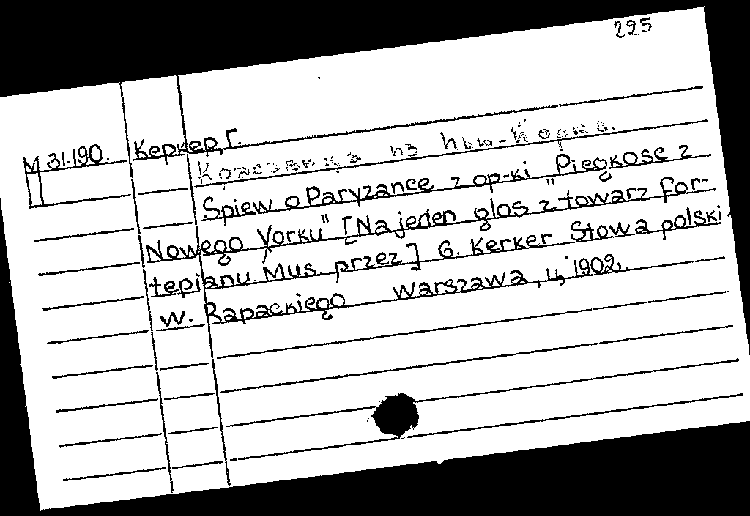 225
М 31.190. Керкер, Г.
из Нью-Йорка.
Spiew o Paryzance z op-ki "Piegkosc z
Nowego Yorku" [Na jeden glos z towarz for-
tepianu. Mus. przez] G. Kerker Stowa polski
w. Rapackiego Warszawa, 1902.